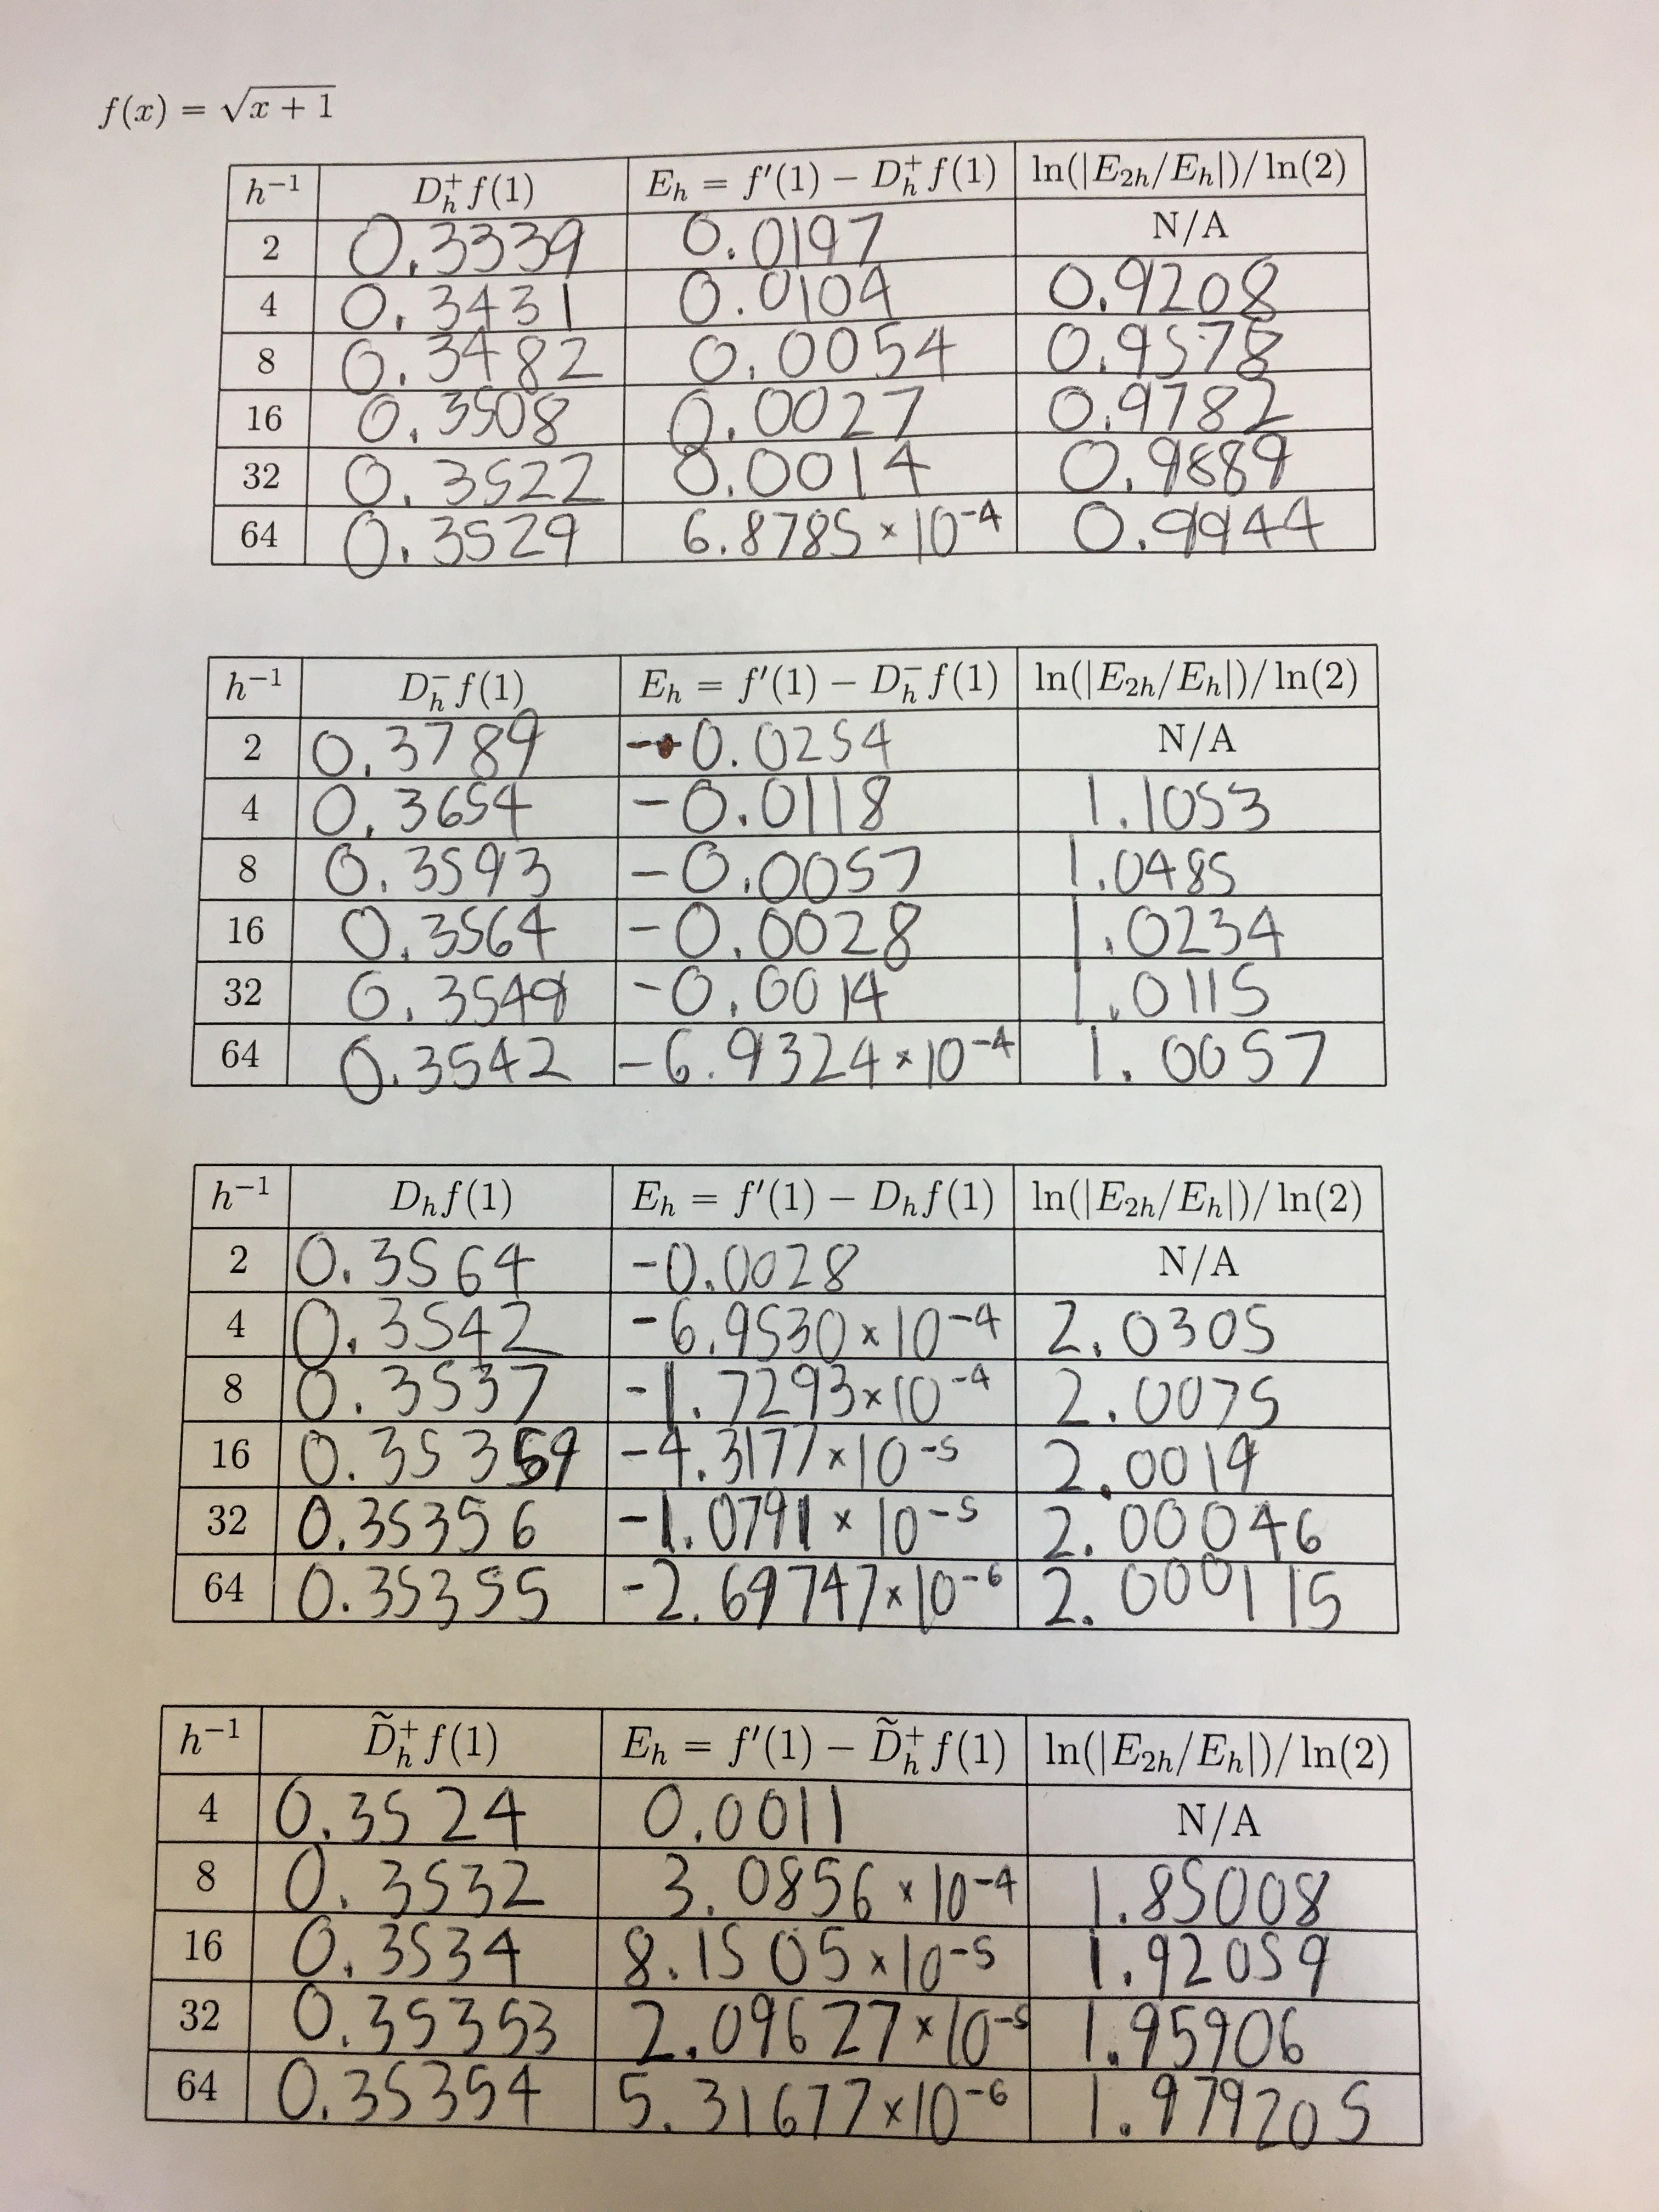 f(x) = √x + 1
h⁻¹ D⁺ₕ f(1) Eₕ = f′(1) − D⁺ₕ f(1) ln(|E₂ₕ/Eₕ|)/ ln(2)
2 0.3339 0.0197 N/A
4 0.3431 0.0104 0.9208
8 0.3482 0.0054 0.9578
16 0.3508 0.0027 0.9782
32 0.3522 0.0014 0.9889
64 0.3529 6.8785 × 10⁻⁴ 0.9944
h⁻¹ D⁻ₕ f(1) Eₕ = f′(1) − D⁻ₕ f(1) ln(|E₂ₕ/Eₕ|)/ ln(2)
2 0.3789 -0.0254 N/A
4 0.3654 -0.0118 1.1053
8 0.3593 -0.0057 1.0485
16 0.3564 -0.0028 1.0234
32 0.3549 -0.0014 1.0115
64 0.3542 -6.9324 × 10⁻⁴ 1.0057
h⁻¹ Dₕf(1) Eₕ = f′(1) − Dₕf(1) ln(|E₂ₕ/Eₕ|)/ ln(2)
2 0.3564 -0.0028 N/A
4 0.3542 -6.9530 × 10⁻⁴ 2.0305
8 0.3537 -1.7293 × 10⁻⁴ 2.0075
16 0.35359 -4.3177 × 10⁻⁵ 2.0019
32 0.35356 -1.0791 × 10⁻⁵ 2.00046
64 0.35355 -2.69747 × 10⁻⁶ 2.000115
h⁻¹ D̃⁺ₕ f(1) Eₕ = f′(1) − D̃⁺ₕ f(1) ln(|E₂ₕ/Eₕ|)/ ln(2)
4 0.3524 0.0011 N/A
8 0.3532 3.0856 × 10⁻⁴ 1.85008
16 0.3534 8.1505 × 10⁻⁵ 1.92059
32 0.35353 2.09627 × 10⁻⁵ 1.95906
64 0.35354 5.31677 × 10⁻⁶ 1.979205